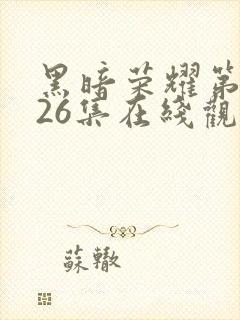 黑暗荣耀第
26集在綫觀
蘇轍